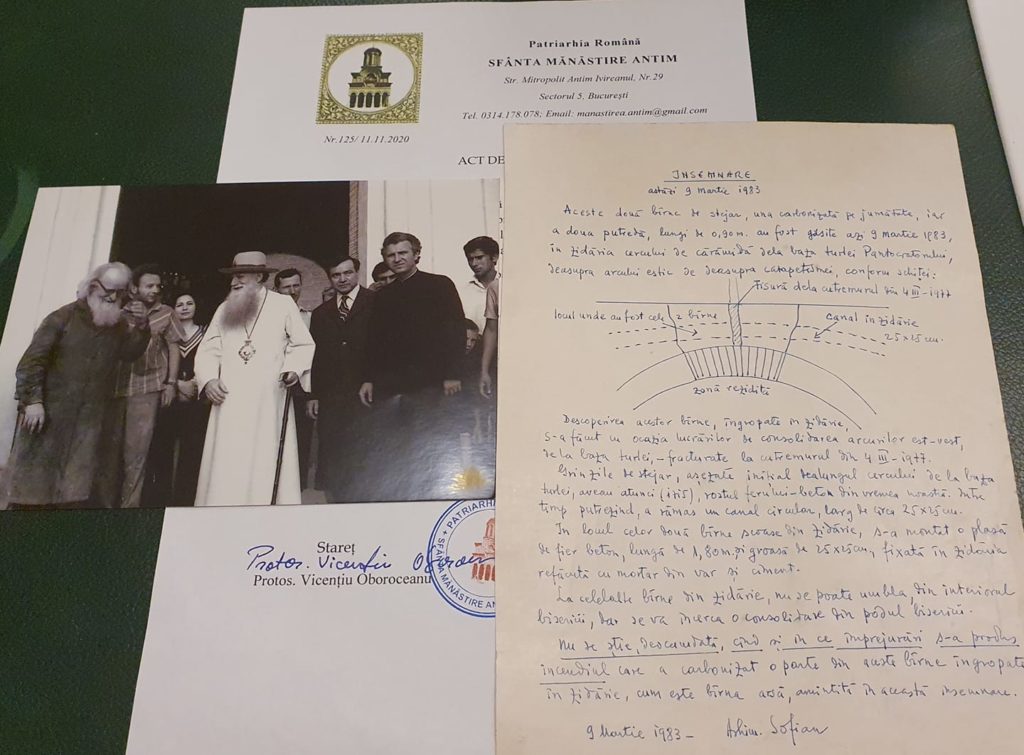 Patriarhia Română
SFÂNTA MĂNĂSTIRE ANTIM
Str. Mitropolit Antim Ivireanul, Nr.29
Sectorul 5, București
Tel. 0314.178.078; Email: manastirea.antim@gmail.com
Nr.125/ 11.11.2020
ACT DE
INSEMNARE
astăzi 9 martie 1983
Aceste două bîrne de stejar, una carbonizată pe jumătate, iar
a doua putredă, lungi de 0,90 m. au fost găsite azi 9 Martie 1983,
în zidăria cercului de cărămidă dela baza turlei Pantocratorului,
deasupra arcului estic de deasupra catapetesmei, conform schiței:
Fisură dela cutremurul din 4 III-1977
locul unde au fost cele 2 bîrne
canal în zidărie
25x25 cm.
zonă rezidită
Descoperirea acestor bîrne, îngropate în zidărie,
s-a făcut cu ocazia lucrărilor de consolidarea arcurilor est-vest,
de la baza turlei, - fracturate la cutremurul din 4 III-1977.
Grinzile de stejar, așezate inițial dealungul cercului de la baza
turlei, aveau atunci rostul ferului-beton din vremea noastră. Între
timp putrezind, a rămas un canal circular, larg de circa 25x25 cm.
În locul celor două bîrne scoase din zidărie, s-a montat o plasă
de fier beton, lungă de 1,80 m. și groasă de 25x25cm, fixată în zidăria
refăcută cu mortar din var și ciment.
La celelalte bîrne din zidărie, nu se poate umbla din interiorul
bisericii, dar se va încerca o consolidare din podul bisericii.
Nu se știe, deocamdată, cînd și în ce împrejurări s-a produs
incendiul care a carbonizat o parte din aceste bîrne îngropate
în zidărie, cum este bîrna arsă, amintită în această însemnare.
9 Martie 1983 - Arhim. Sofian
Stareț
Protos. Vicențiu Oboroceanu
Protos. Vicențiu
PATRIARHIA
SFÂNTA MĂNĂSTIRE AN